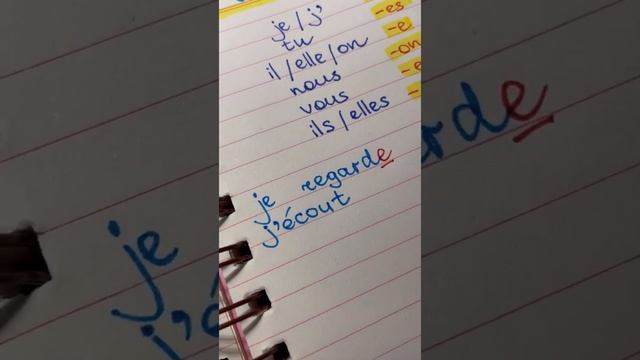 je / j'
-es
tu
-e
il/elle/on
-on
nous
vous
ils/elles
je regarde
j'écout